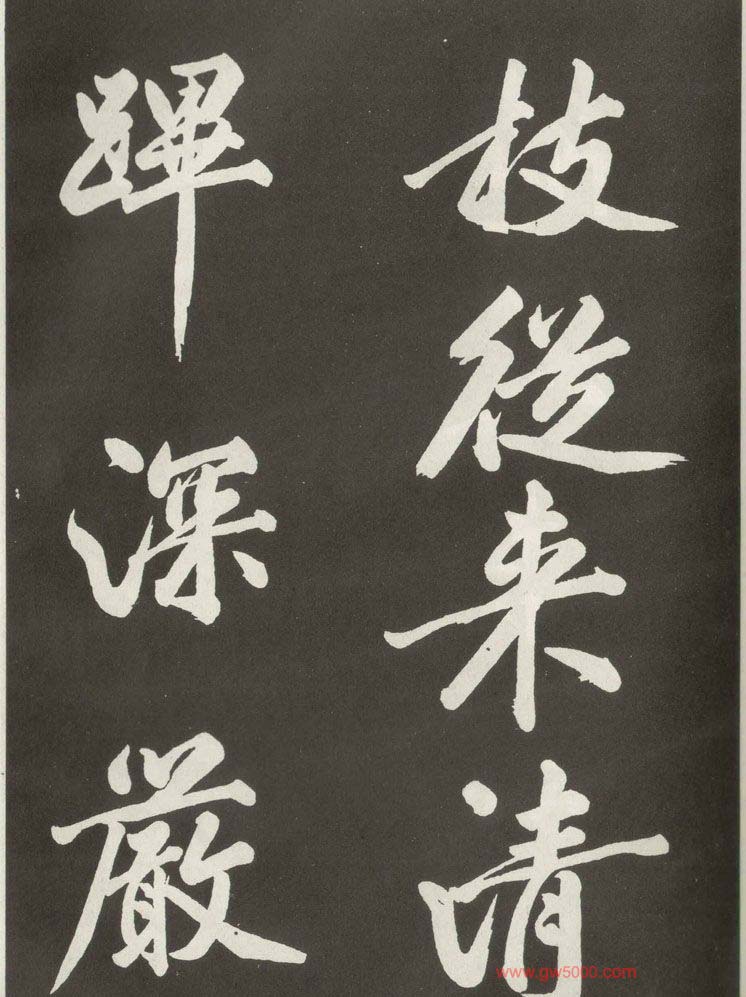 技從来清
蹕深嚴
www.gw5000.com